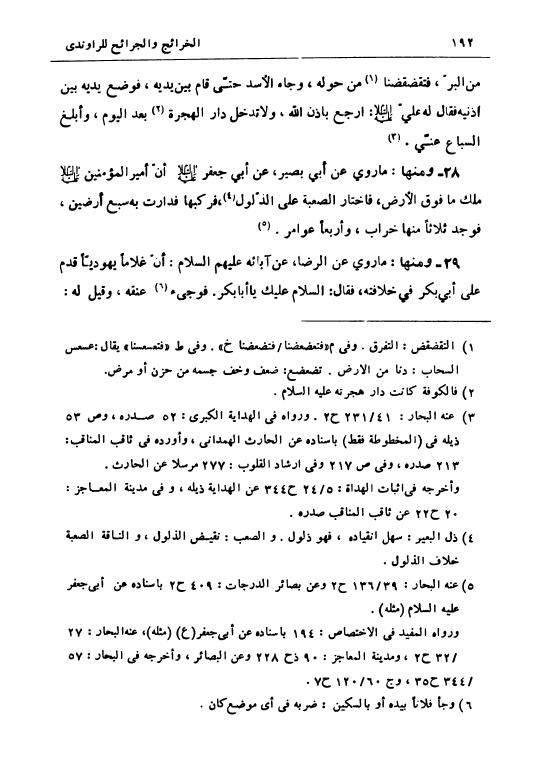 ١٩٢ الخرائج والجرائح للراوندى
من البر ّ ، فتقضقضنا (١) من حوله ، وجاء الأسد حتّى قام بين يديه ، فوضع يديه بين
اذنيه فقال له علي ّ عليه السلام: ارجع باذن الله ، ولاتدخل دار الهجرة (٢) بعد اليوم ، وأبلغ
السباع عنّي . (٣)
٣٨ـ ومنها : ماروي عن أبي بصير، عن أبي جعفر عليه السلام أنّ أمير المؤمنين عليه السلام
ملك ما فوق الأرض، فاختار الصعبة على الذّلول(٤)،فركبها فدارت به سبع أرضين ،
فوجد ثلاثاً منها خراب ، وأربعاً عوامر . (٥)
٣٩ـ ومنها : ماروي عن الرضا، عن آبائه عليهم السلام : أنّ غلاماً يهوديّاً قدم
على أبي بكر في خلافته، فقال: السلام عليك ياأبابكر. فوجىء (٦) عنقه ، وقيل له :
١) التقضقض : التفرق . وفى م«فتعضعضنا/فتضعضنا خ» . وفى ط «فتعسعسنا» يقال:عسعس
السحاب : دنا من الارض . تضعضع: ضعف وخف جسمه من حزن أو مرض.
٢) فالكوفة كانت دار هجرته عليه السلام .
٣) عنه البحار : ٢٣١/٤١ ح٢ . ورواه فى الهداية الكبرى : ٥٢ صـدره ، وص ٥٣
ذيله فى (المخطوطة فقط) باسناده عن الحارث الهمدانى ، وأورده فى ثاقب المناقب:
٢١٣ صدره ، وفى ص ٢١٧ وفى ارشاد القلوب : ٢٧٧ مرسلا عن الحارث .
وأخرجه فى اثبات الهداة : ٢٤/٥ ح٣٤٤ عن الهداية ذيله ، و فى مدينة المعـاجز :
٢٠ ح٢٢ عن ثاقب المناقب صدره .
٤) ذل البعير : سهل انقياده ، فهو ذلول . و الصعب : نقيـض الذلول ، و الناقة الصعبة
خلاف الذلول .
٥) عنه البحار : ١٣٦/٣٩ ح٢ وعن بصائر الدرجات : ٤٠٩ ح٢ باسناده عن أبى جعفر
عليه السلام (مثله) .
ورواه المفيد فى الاختصاص : ١٩٤ باسناده عن أبى جعفر(ع) (مثله)، عنه البحار : ٢٧
/٣٢ ح٢ ، ومدينة المعاجز : ٩٠ ذح ٢٢٨ وعن البصائر ، وأخرجه فى البحار : ٥٧
/٣٤٤ ح٣٥ ، وج ١٢٠/٦٠ ح٧.
٦) وجأ فلاناً بيده أو بالسكين : ضربه فى أى موضع كان .